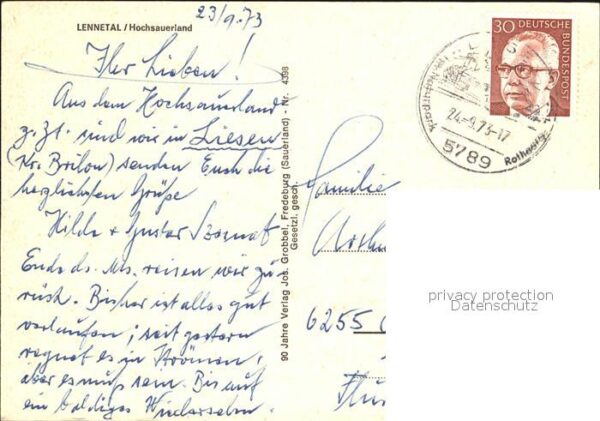 LENNETAL / Hochsauerland
23/9.73
Ihr Lieben!
Aus dem Hochsauerland
z. Zt. sind wir in Liesen
(Kr. Brilon) senden Euch die
herzlichsten Grüße
Hilde + Gustav
Ende ds. Ms. reisen wir zu-
rück. Bisher ist alles gut
verlaufen; seit gestern
regnet es in Strömen,
aber es muß sein. Bis auf
ein baldiges Wiedersehn.
90 Jahre Verlag Jos. Grobbel, Fredeburg (Sauerland) - Nr. 4398
Gesetzl. gesch.
30 DEUTSCHE BUNDESPOST
24.-9.73-17
5789
Rothaar
Familie
6255
privacy protection
Datenschutz